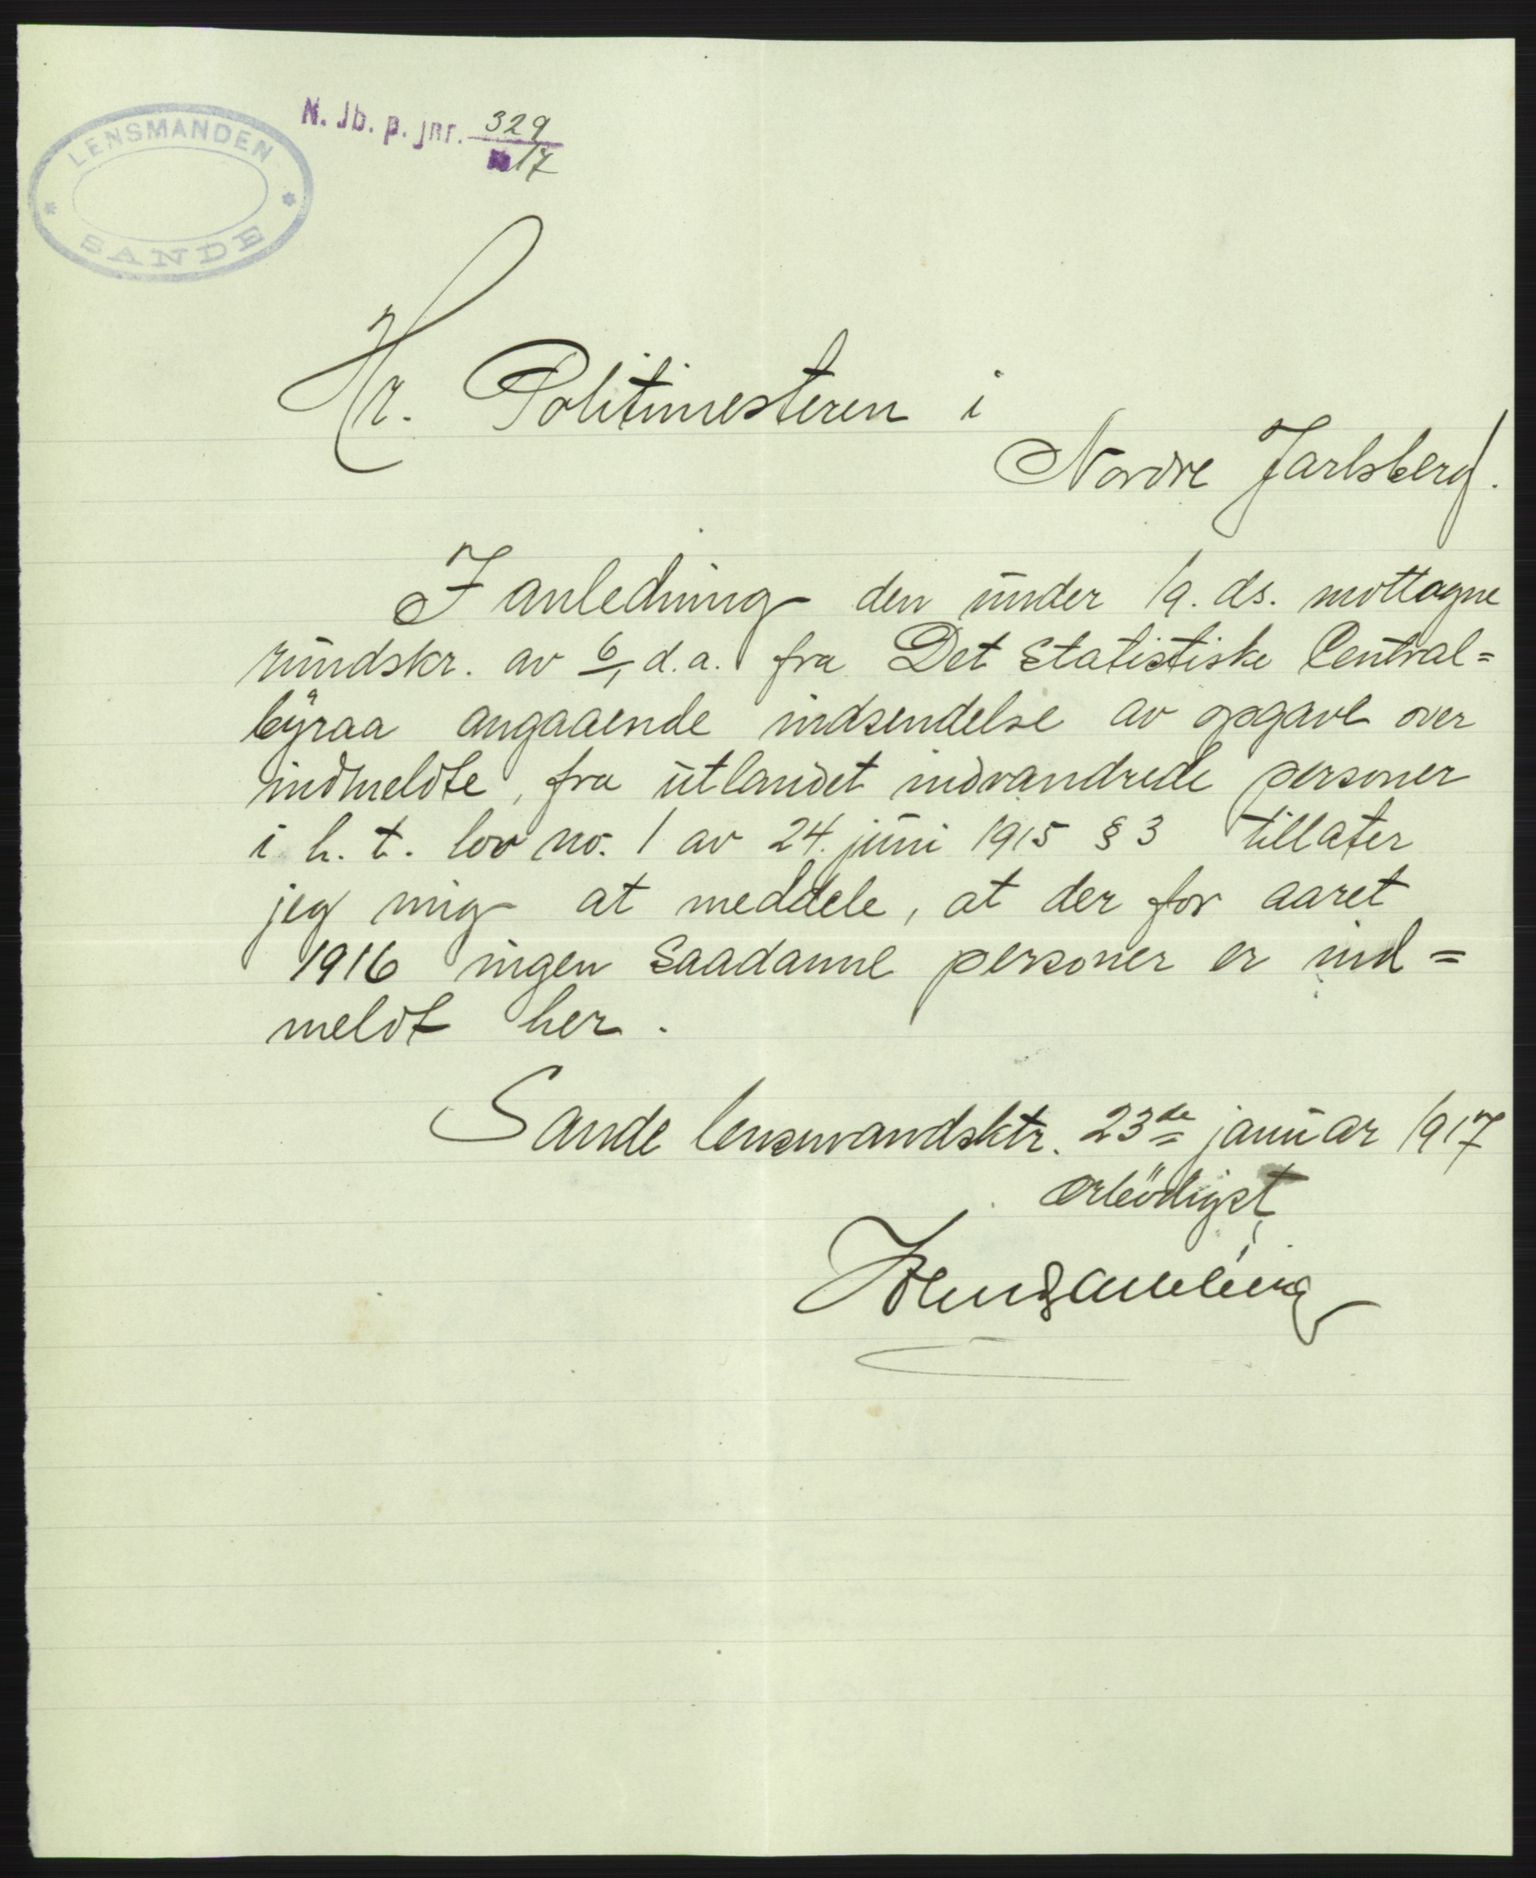 LENSMANDEN
SANDE
N. Jb. p. jnr. 329
17
Hr. Politimesteren i
Nordre Jarlsberg.
I anledning den under 19. ds. mottagne
rundskr. av 6/1 d.a. fra Det Statistiske Central=
byraa angaaende indsendelse av opgave over
indmeldte, fra utlandet indvandrede personer
i h. t. lov no. 1 av 24. juni 1915 § 3 tillater
jeg mig at meddele, at der for aaret
1916 ingen saadanne personer er ind=
meldt her.
Sande lensmandsktr. 23de januar 1917
ærbödigst